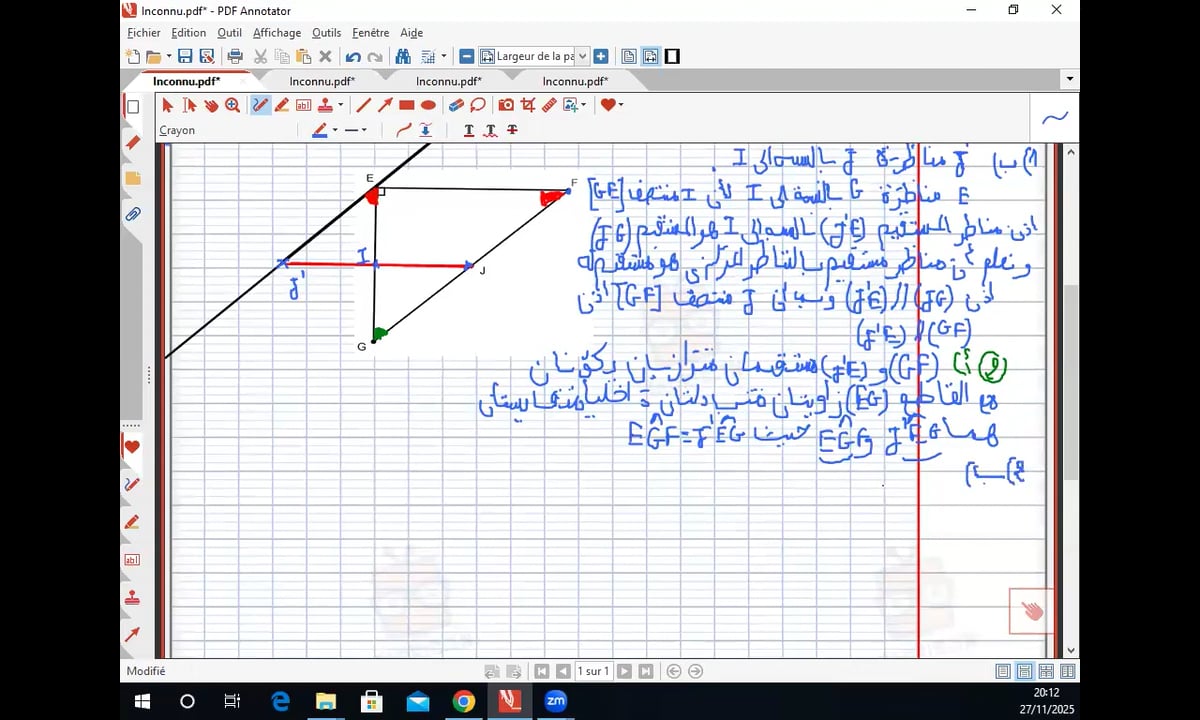 Inconnu.pdf* - PDF Annotator
Fichier Edition Outil Affichage Outils Fenêtre Aide
Largeur de la pa
Inconnu.pdf* Inconnu.pdf* Inconnu.pdf* Inconnu.pdf*
Crayon
1) ب) J' مناظرة J بالنسبة إلى I .
E مناظرة G بالنسبة إلى I لأن I منتصف [GE]
اذن مناظر المستقيم (J'E) بالنسبة إلى I هو المستقيم (JG)
ونعلم أن مناظر مستقيم بالتناظر المركزي هو مستقيم
اذن (J'E) // (JG) وبما أن J منتصف [GF] اذن
(J'E) // (GF)
2) أ) (GF) و (J'E) مستقيمان متوازيان يكونان
مع القاطع (EG) زاويتان متبادلتان داخليا متقايستان
هما J'ÊG و EĜF حيث EĜF = J'ÊG
2) ب)
E
F
I
J
J'
G
Modifié
1 sur 1
zm
20:12
27/11/2025